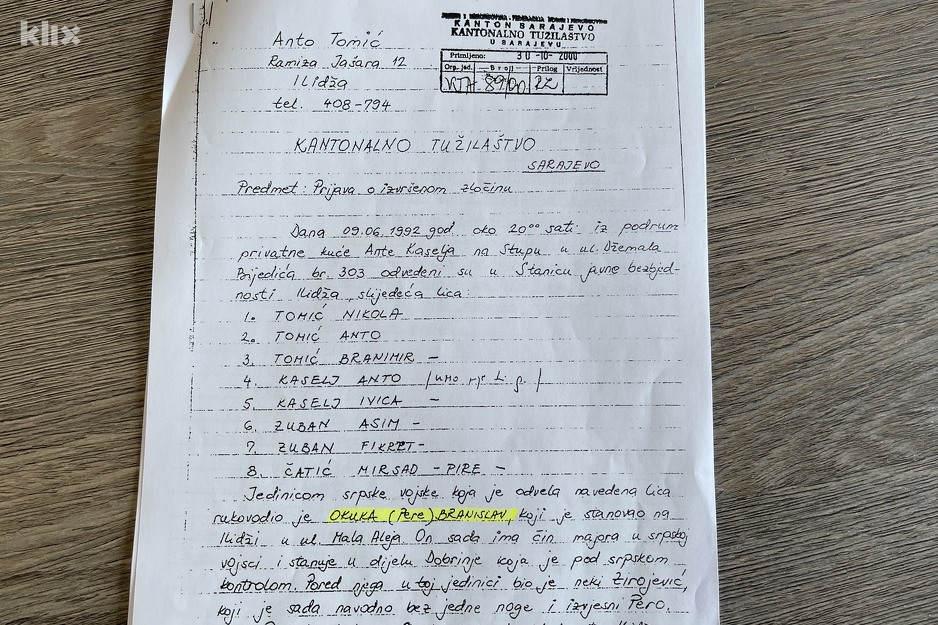 klix
KANTON SARAJEVO
KANTONALNO TUŽILAŠTVO
U SARAJEVU
Primljeno: 30-10-2000
Org. jed. Broj Prilog Vrijednost
KTA 89/00
Anto Tomić
Ramiza Jašara 12
Ilidža
tel. 408-794
KANTONALNO TUŽILAŠTVO
SARAJEVO
Predmet: Prijava o izvršenom zločinu
Dana 09.06.1992 god. oko 20⁰⁰ sati iz podrum
privatne kuće Ante Kaselja na Stupu u ul. Džemala
Bijedića br. 303 odvedeni su u Stanicu javne bezbjed-
nosti Ilidža slijedeća lica:
1. TOMIĆ NIKOLA
2. TOMIĆ ANTO
3. TOMIĆ BRANIMIR –
4. KASELJ ANTO
5. KASELJ IVICA –
6. ZUBAN ASIM –
7. ZUBAN FIKRET –
8. ČATIĆ MIRSAD – PIRE –
Jedinicom srpske vojske koja je odvela navedena lica
rukovodio je OKUKA (Pere) BRANISLAV, koji je stanovao na
Ilidži u ul. Mala Aleja On sada ima čin majora u srpskoj
vojsci i stanuje u dijelu Dobrinje koja je pod srpskom
kontrolom. Pored njega u toj jedinici bio je neki Zirojević,
koji je sada navodno bez jedne noge i izvjesni Pero.